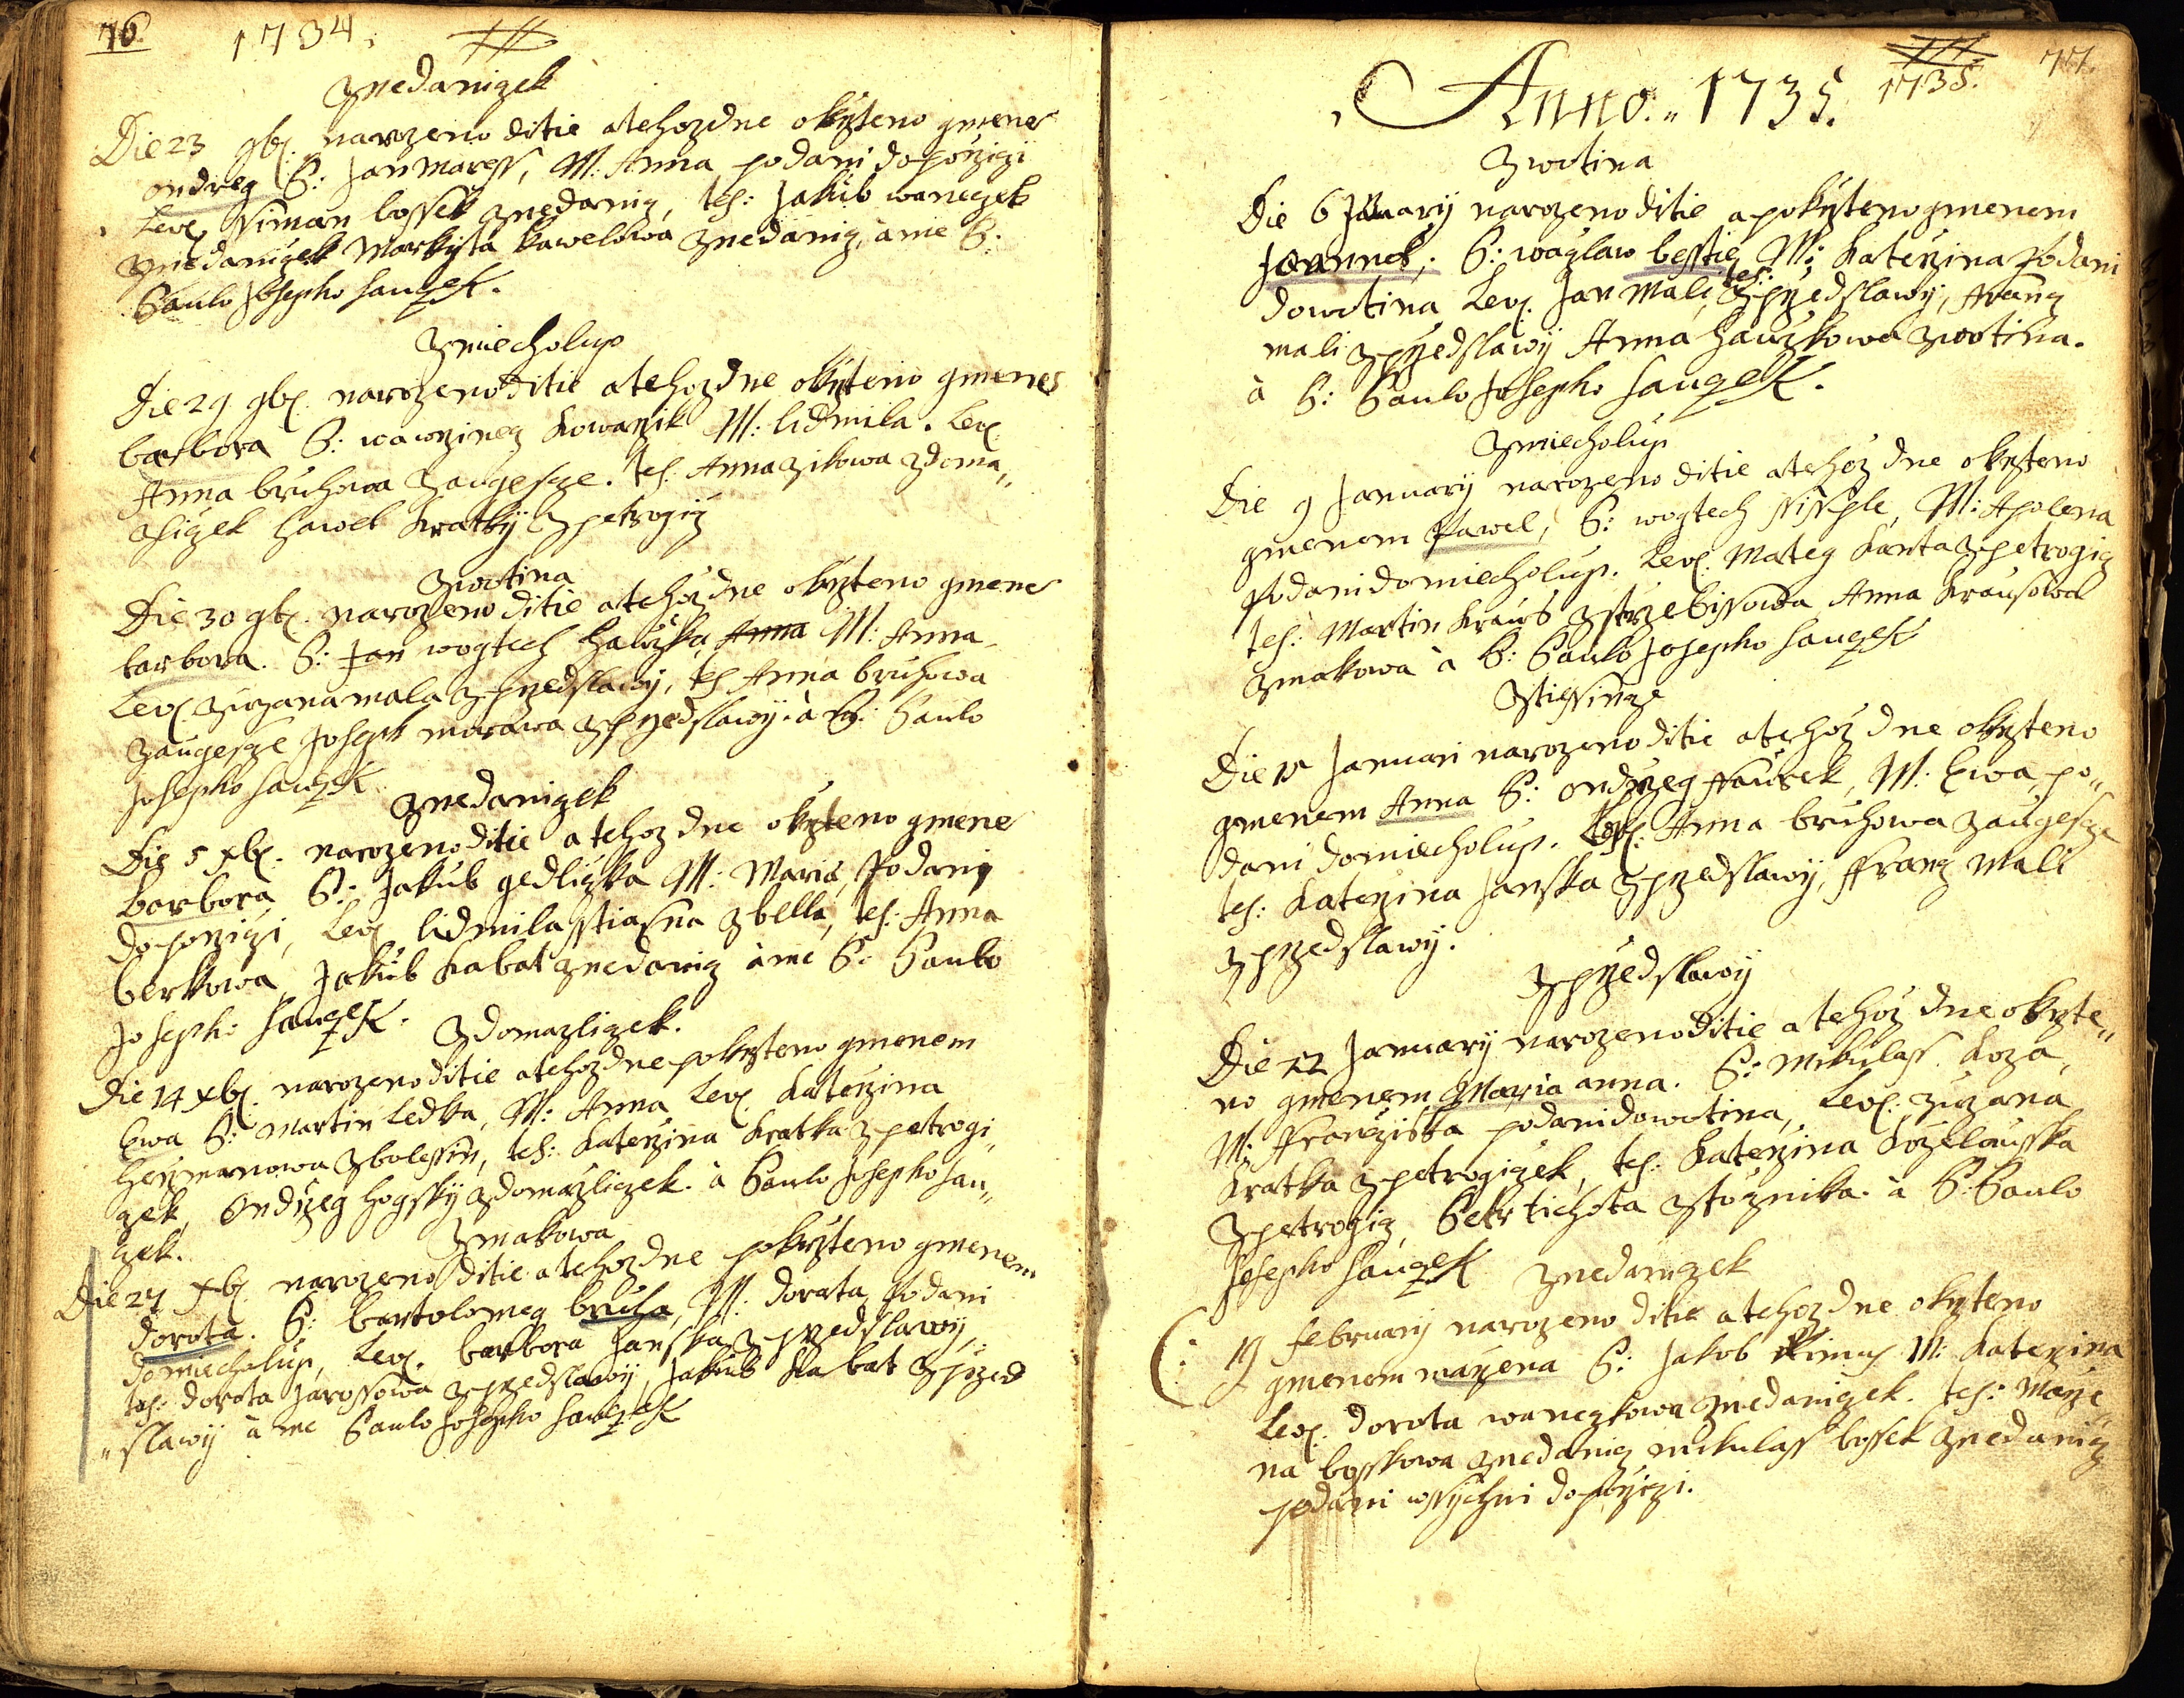 76.
1734.
z nedanizek
Die 23 9bʳ. narozeno ditie a tehoz dne okrzteno gmene
ondreg P: Jan Maress, M: Anna, podani do porzizi
Lev. ssiman bossek z nedaniz, tes: Jakub wanezek
z niedanizek Markyta kawelowa z nedaniz, a me P:
Paulo Josepho hauzek.
z miecholup
Die 29 9bʳ. narozeno ditie a tehoz dne okrzteno gmenes
barbora P: wawrzinez kowarzik M: lidmila. Lev.
Anna bruhowa z augezze. tes. Anna zikowa z doma„
zlizek hawel kratky z petrogiz
z wotina
Die 30 9bʳ. narozeno ditie a tehoz dne okrzteno gmene
barbora. P: Jan wogtech hawzka Anna M: Anna
Lev. zuzana mala z przedslawy, tes Anna bruhowa
z augezze Joseph morawa z przedslawy. à P: Paulo
Josepho hauzek
z nedanizek
Die 5 xbʳ. narozeno ditie a tehoz dne okrzteno gmene
barbora, P: Jakub gedlizka M: Maria, podany
do porzizi, Lev. lidmila sstiasna z bella, tes: Anna
berkowa, Jakub kabat z nedaniz à me P: Paulo
Josepho hauzek.
z domazlizek.
Die 14 xbʳ. narozeno ditie a tehoz dne pokrzteno gmenem
Ewa P: Martin Ledka, M: Anna Lev. Katerzina
herzmanowa z bolessin, tes: Katerzina Kratka z petrogi„
zek, Ondrzeg hogsky z domazlizek. à Paulo Josepho hau„
zek.
z makowa
Die 27 xbʳ. narozeno ditie a tehoz dne pokrzteno gmenem
dorota. P: bartolomeg bruha, M: dorata, podani
do miecholup, Lev. barbora Janska z przedslawy,
tes: dorota Jarossowa z przedslawy, Jakub Kabat z przed
„slawy à me Paulo Josepho hauzek
77.
1735.
Anno. „ 1735.
z wotina
Die 6 January narozeno ditie a pokrzteno gmenem
Joannes, P: wazlaw besstie M: Katerzina podani
do wotina Lev. Jan Mali, tes: z przedslawy, franz
mali z przedslawy Anna hauzkowa z wotina.
à P: Paulo Josepho hauzek.
z miecholup
Die 9 January narozeno ditie a tehoz dne okrzteno
gmenem Pawel, P: wogtech M: Apolena
podani do miecholup. Lev. Mateg Kanta z petrogiz
tes: Martin Kraus z strzebissowa Anna Krausowa
z makowa à P: Paulo Josepho hauzek
z tiessinze
Die January narozeno ditie a tehoz dne okrzteno
gmenem Anna P: ondrzeg ffaucek, M: Ewa, po„
dani do miecholup. Lev. Anna bruhowa z augezze
tes: Katerzina Janska z przedslawy, ffranz Mali
z przedslawy.
z przedslawy
Die 22 January narozeno ditie a tehoz dne okrzte„
no gmenem Maria anna. P: Mikulass Koza,
M: ffranziska podani do wotina, Lev. zuzana
Kratka z petrogizek, tes: Katerzina
z petrogiz, Petr tichota z tozznika. à P: Paulo
Josepho hauzek
z nedanizek
19 february narozeno ditie a tehoz dne okrzteno
gmenem marzena P: Jakob M: Katerzina
Lev. dorota wanezkowa z nedanizek. tes: Marze
na bosskowa z nedaniz mikulass bossek z nedaniz
podani wssychni do porzizi.